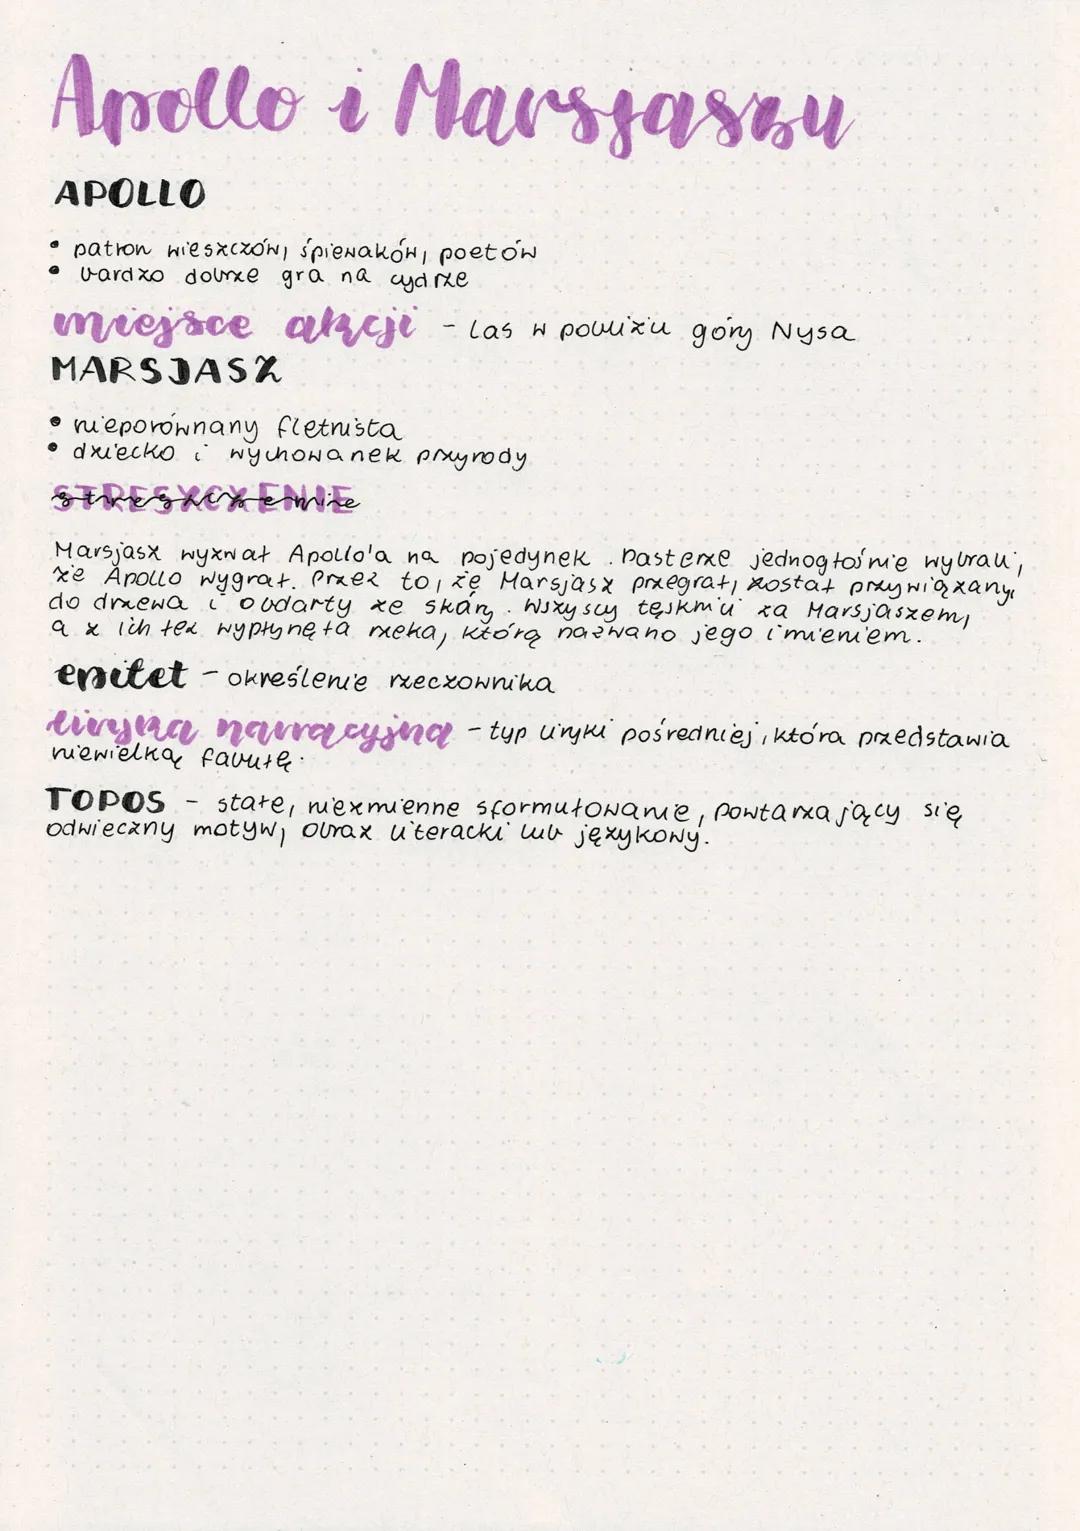 Apollo i Marsjaszu
APOLLO
• patron wieszczów, śpiewaków, poetów
• bardzo dobrze gra na cydrze
miejsce akcji - las w pobliżu góry Nysa
MARSJASZ
• nieporównany fletnista
• dziecko i wychowanek przyrody
STRESZCZENIE
Marsjasz wyzwał Apollo'a na pojedynek. Pasterze jednogłośnie wybrali,
że Apollo wygrał. Przez to, że Marsjasz przegrał, został przywiązany
do drzewa i obdarty ze skóry. Wszyscy tęsknili za Marsjaszem,
a z ich łez wypłynęła rzeka, którą nazwano jego imieniem.
epitet - określenie rzeczownika
liryka narracyjna - typ liryki pośredniej, która przedstawia
niewielką fabułę.
TOPOS - stałe, niezmienne sformułowanie, powtarzający się
odwieczny motyw, obraz literacki lub językowy.